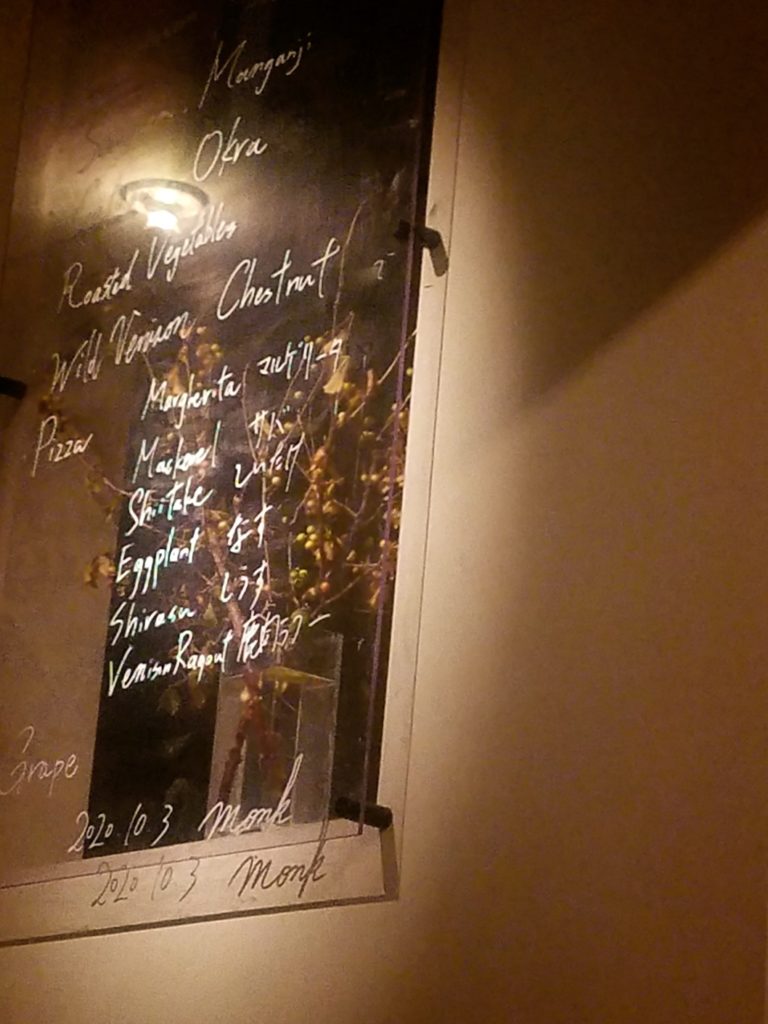 Manganji
Okra
Roasted Vegetables
Wild Venison Chestnut
Pizza Margherita マルゲリータ
Mackerel サバ
Shiitake しいたけ
Eggplant なす
Shirasu しらす
Venison Ragout 鹿肉ラグー
Grape
2020.10.3 monk
2020 10 3 monk